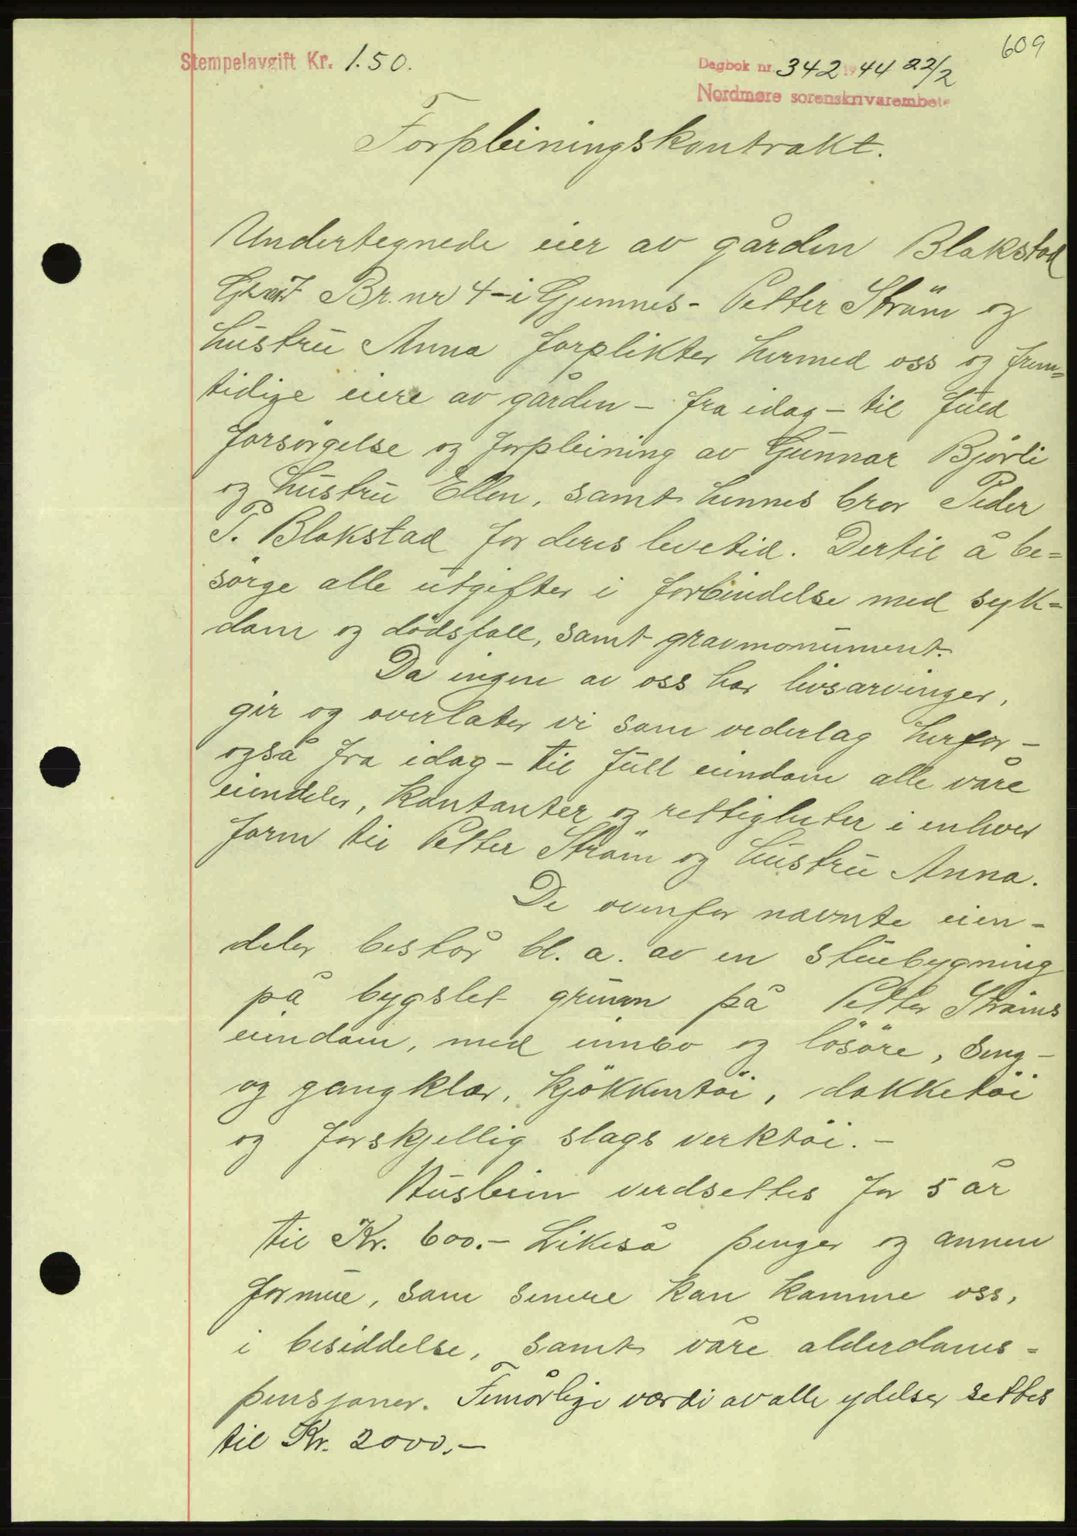 609
Stempelavgift Kr. 1.50.
Dagbok nr. 342 1944 22/2
Nordmøre sorenskrivarembete
Forpleiningskontrakt.
Undertegnede eier av gården Blakstad
Br. nr 4 i Gjemnes - Petter Ström og
hustru Anna forplikter hermed oss og frem=
tidige eiere av gården - fra idag - til full
forsörgelse og forpleining av Gunnar Björli
og hustru Ellen, samt hennes bror Peder
P. Blakstad for deres levetid. Dertil å be=
sörge alle utgifter i forbindelse med syk=
dom og dödsfall, samt gravmonument.
Da ingen av oss har livsarvinger,
gir og overlater vi som vederlag herfor -
også fra idag - til full eiendom alle våre
eiendeler, kontanter og rettigheter i enhver
form til Petter Ström og hustru Anna.
De ovenfor nævnte eien-
deler består bl. a. av en stuebygning
på bygslet grunn på Petter Ströms
eiendom, med innbo og lösöre, seng-
og gangklær, kjökkentöi, dekketöi
og forskjellig slags verktöi. -
Husleien verdsettes for 5 år
til Kr. 600.- Likeså penger og annen
formue, som senere kan komme oss,
i besiddelse, samt våre alderdoms-
pensjoner. Femårlige værdi av alle ydelser settes
til Kr. 2000.-